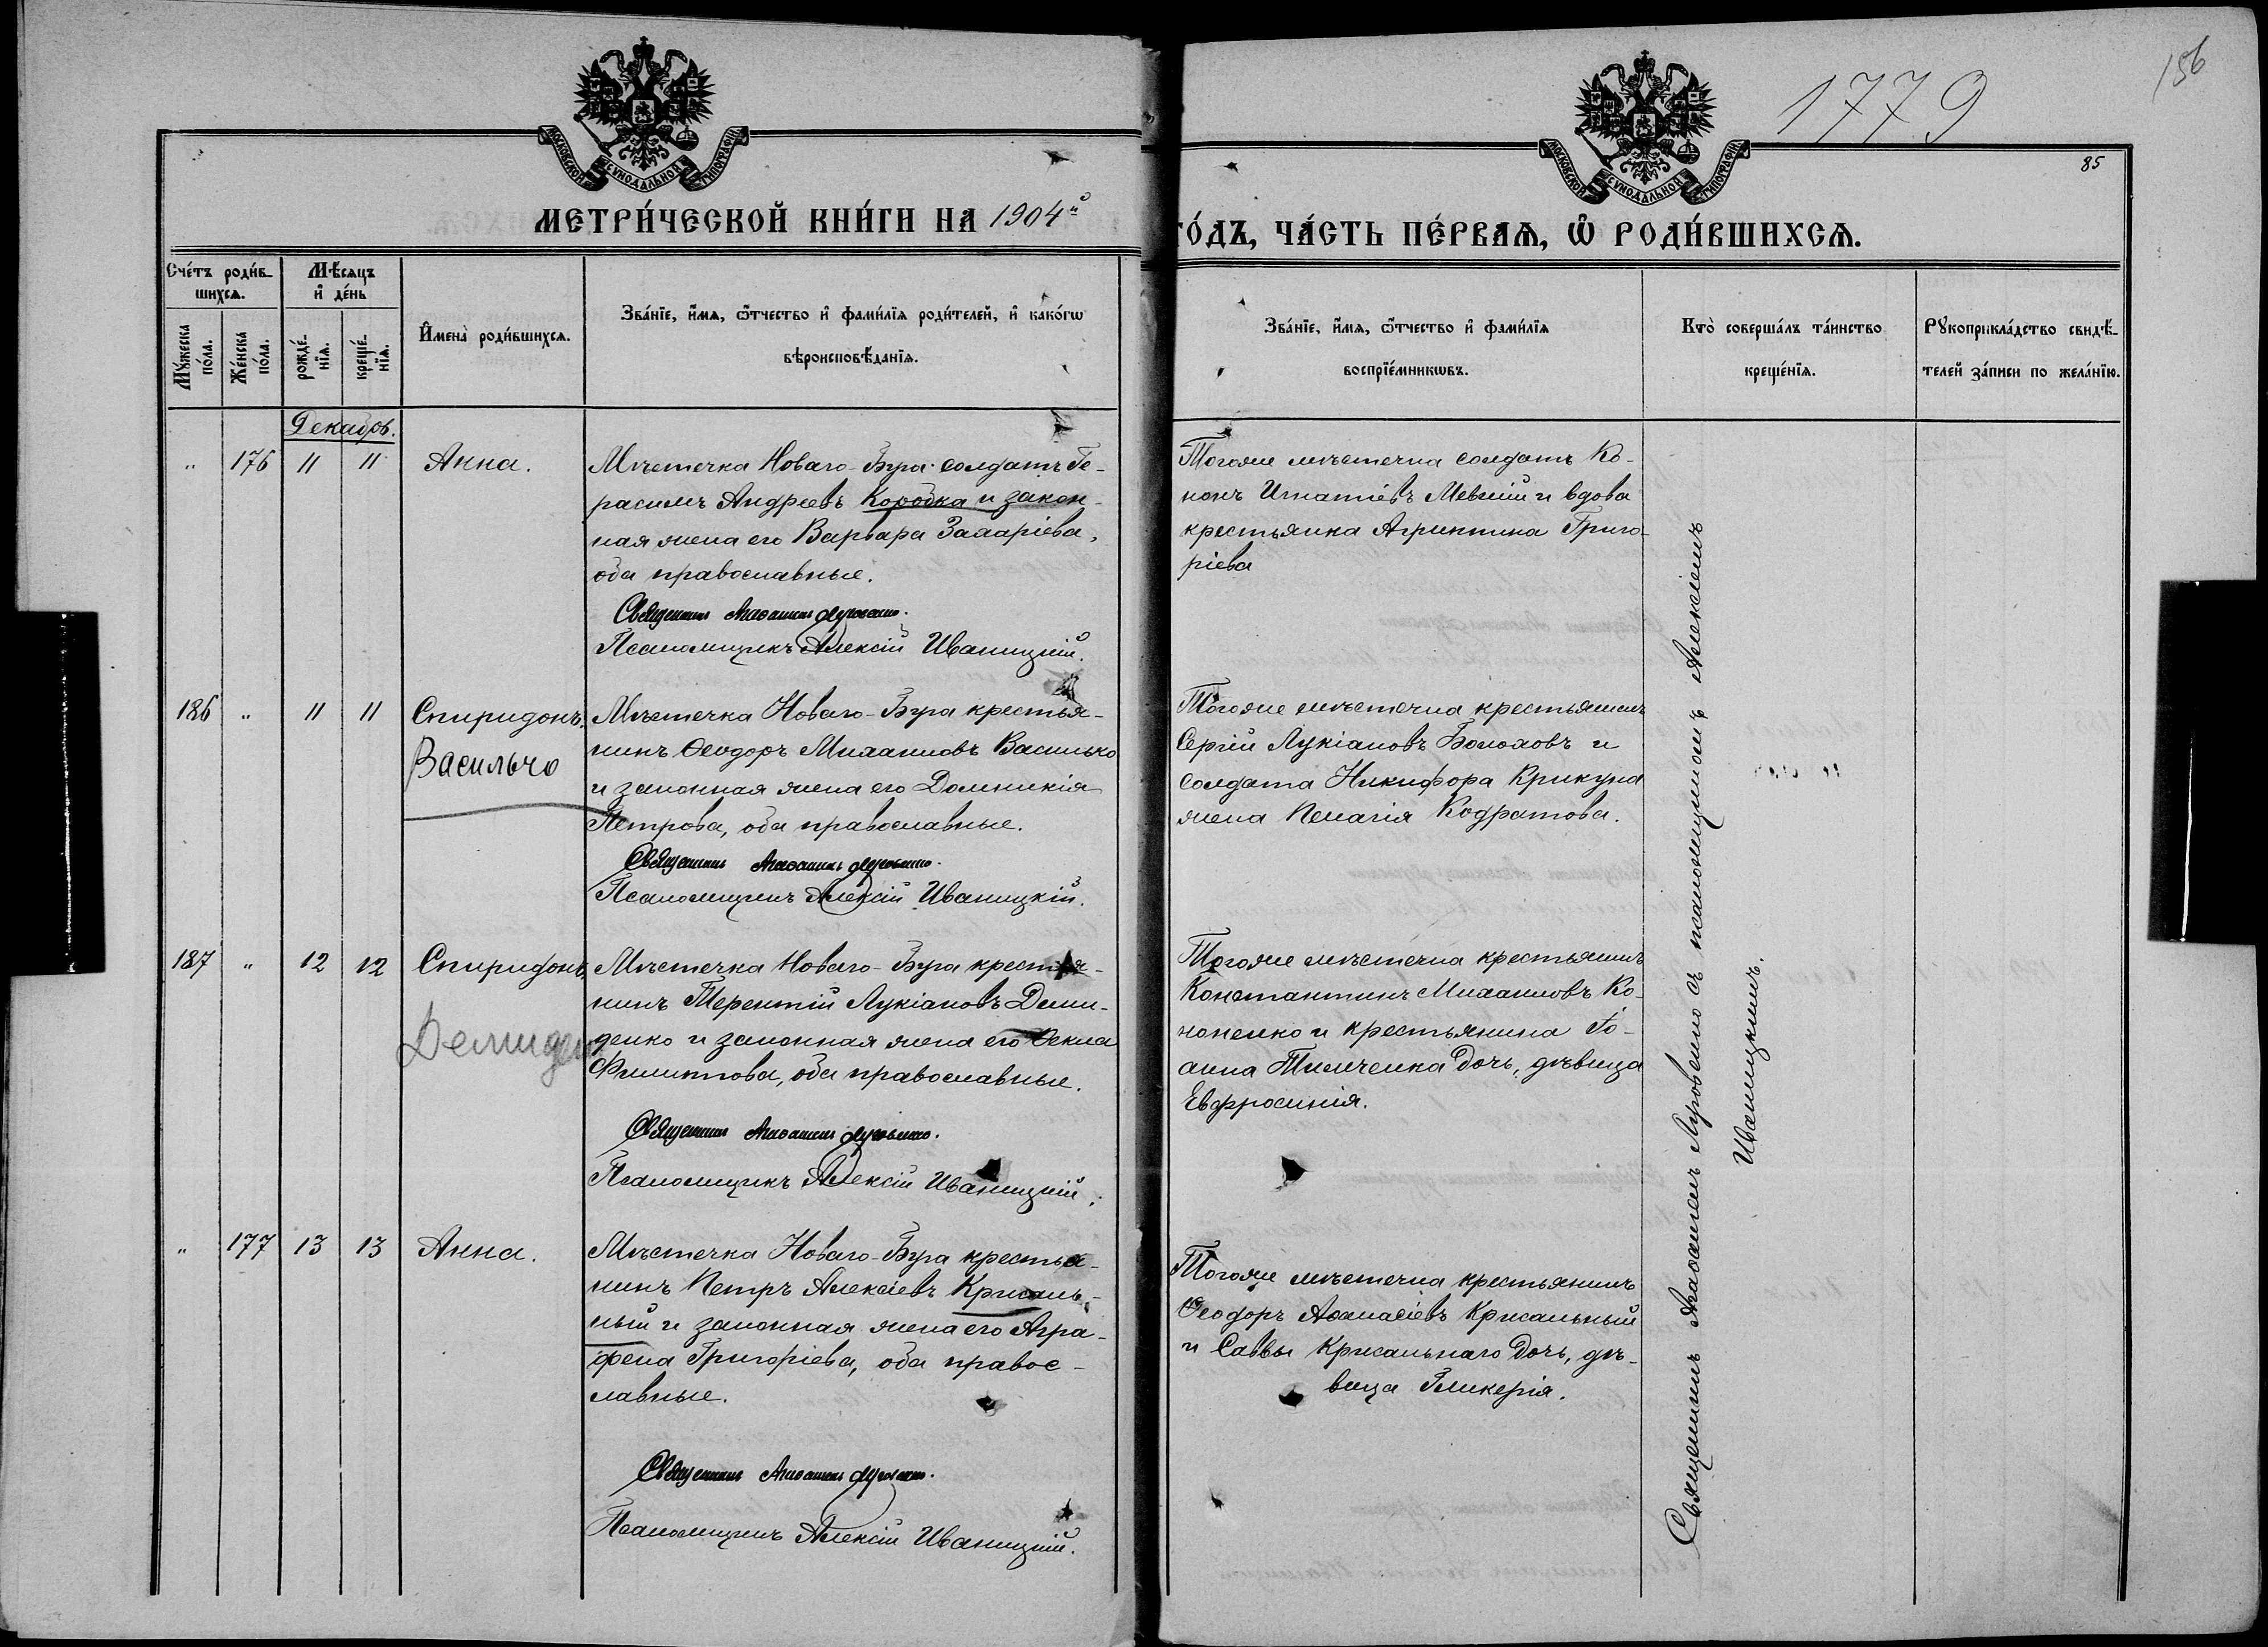 1779
156
85
МОСКОВСКОЙ СУНОДАЛЬНОЙ ТИПОГРАФІИ
МОСКОВСКОЙ СУНОДАЛЬНОЙ ТИПОГРАФІИ
МЕТРИ́ЧЕСКОЙ КНИ́ГИ НА 1904й
ГО́ДЪ, ЧА́СТЬ ПЕ́РВАѦ, Ѡ РОДИ́ВШИХСѦ.
Сче́тъ роди́в-
шихсѧ.
Мꙋ́жеска по́ла.
Же́нска по́ла.
Мѣ́сѧцъ
и҆ де́нь
рожде́-нїѧ.
креще́-нїѧ.
И҆мена̀ роди́вшихсѧ.
Зва́нїе, и҆́мѧ, ѻ҆́тчество и҆ фами́лїѧ роди́телей, и҆ како́гѡ
вѣроисповѣ́данїѧ.
Зва́нїе, и҆́мѧ, ѻ҆́тчество и҆ фами́лїѧ
воспрїе́мникѡвъ.
Кто̀ соверша́лъ та́инство
креще́нїѧ.
Рꙋкоприкла́дство свидѣ́-
телей за́писи по жела́нїю.
Декабрь.
" 176 11 11 Анна.
Мѣстечка Новаго-Буга солдатъ Ге-
расимъ Андреевъ Коробка и закон-
ная жена его Варвара Захаріева,
оба православные.
Священникъ Аѳанасій Луговенко.
Псаломщикъ Алексій Иваницкій.
Тогоже мѣстечка солдатъ Ко-
нонъ Игнатіевъ Мевшій и вдова
крестьянка Агриппина Григо-
ріева
186 " 11 11 Спиридонъ.
Васильчо
Мѣстечка Новаго-Буга крестья-
нинъ Ѳеодоръ Михаиловъ Василько
и законная жена его Домникія
Петрова, оба православные.
Священникъ Аѳанасій Луговенко.
Псаломщикъ Алексій Иваницкій.
Тогоже мѣстечка крестьянинъ
Сергій Лукіановъ Болоховъ и
солдата Никифора Крикуна
жена Пелагія Кодратова.
187 " 12 12 Спиридонъ.
Демиден
Мѣстечка Новаго-Буга крестья-
нинъ Терентій Лукіановъ Деми-
денко и законная жена его Ѳекла
Филиппова, оба православные.
Священникъ Аѳанасій Луговенко.
Псаломщикъ Алексій Иваницкій.
Тогоже мѣстечка крестьянинъ
Константинъ Михаиловъ Ко-
ноненко и крестьянина Іо-
анна Тимченка дочь, дѣвица
Евфросинія.
" 177 13 13 Анна.
Мѣстечка Новаго-Буга крестья-
нинъ Петръ Алексіевъ Крисаль-
ный и законная жена его Агра-
фена Григоріева, оба правос-
лавные.
Священникъ Аѳанасій Луговенко.
Псаломщикъ Алексій Иваницкій.
Тогоже мѣстечка крестьянинъ
Ѳеодоръ Аѳанасіевъ Крисальный
и Саввы Крисальнаго дочь, дѣ-
вица Гликерія.
Священникъ Аѳанасій Луговенко съ псаломщикомъ Алексіемъ
Иваницкимъ.